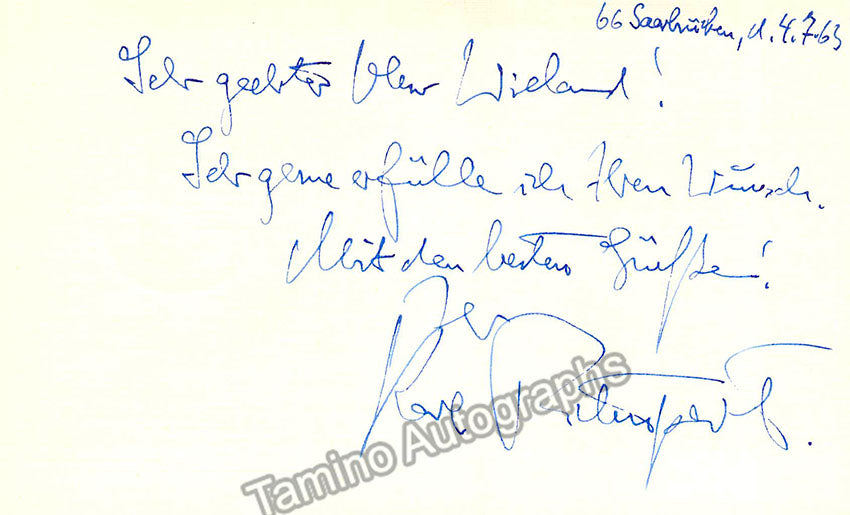 66 Saarbrücken, d. 4.7.63
Sehr geehrter Herr Wieland!
Sehr gerne erfülle ich Ihren Wunsch.
Mit den besten Grüßen!
Ihr
Karl Ristenpart.
Tamino Autographs